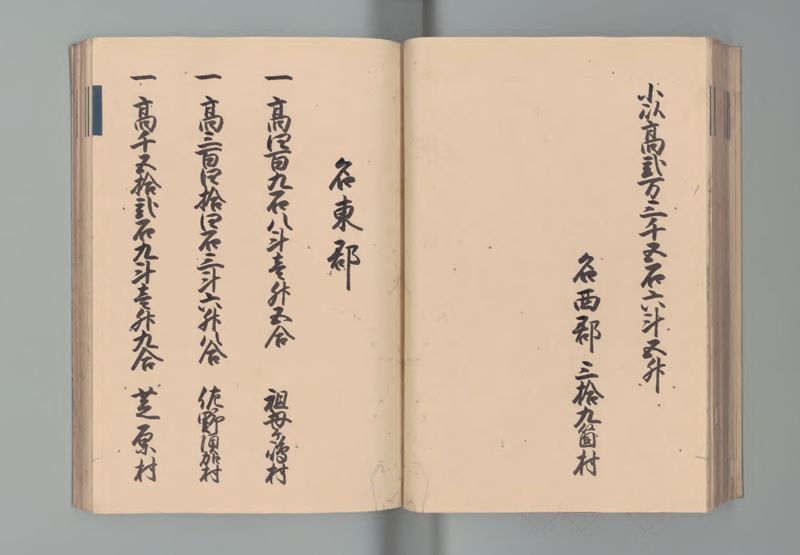 小以高弐万三千五石六斗五升
名西郡 三拾九箇村
名東郡
一 高四百九石八斗壱升五合 祖母ヶ嶋村
一 高三百四拾四石三斗六升八合 佐野須賀村
一 高千五拾弐石九斗壱升九合 芝原村